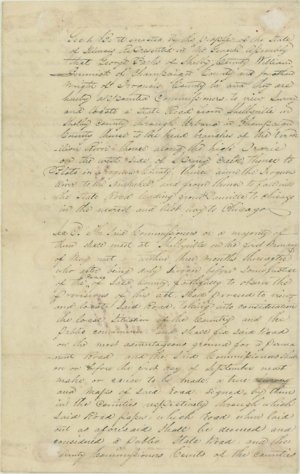 Sec 1 Be it enacted by the People of the State
of Illinois Represented in the General Assembly
That George Parks of Shelby County William
of Champaign County and
Wright of Iroquois County be and they are
hereby appointed Commissioners to view Survey
and locate a State Road from Shelbyville in
Shelby County through Urbana in Champaign
County thence to the head branches of the
thence along the high Prairie
on the side of Spring Creek thence to
in Iroquois County, thence along the Iroquois
River to the and from thence to
the State Road leading from to Chicago
in the nearest and best way to Chicago
Sec 2 The Said Commissioners or a majority of
them shall meet at Shelbyville on the first Monday
of May next or within four months thereafter
who after being duly sworn before some Justice
of the Peace of Said County faithfully to observe the
Provisions of this act Shall proceed to view
and locate Said Road taking into consideration
the local Situation of the Country and the
public convenience and shall fix said Road
on the most advantageous ground for a perma
nent Road and the Said Commissioners shall
on or before the first day of September next
make, or cause to be made a true
and Maps of Said Road Signed by them
in the Counties respectively through which
Said Road pass which Road when laid
out as aforesaid Shall be deemed and
considered a public State Road and the
County Commissioners Courts of the Counties